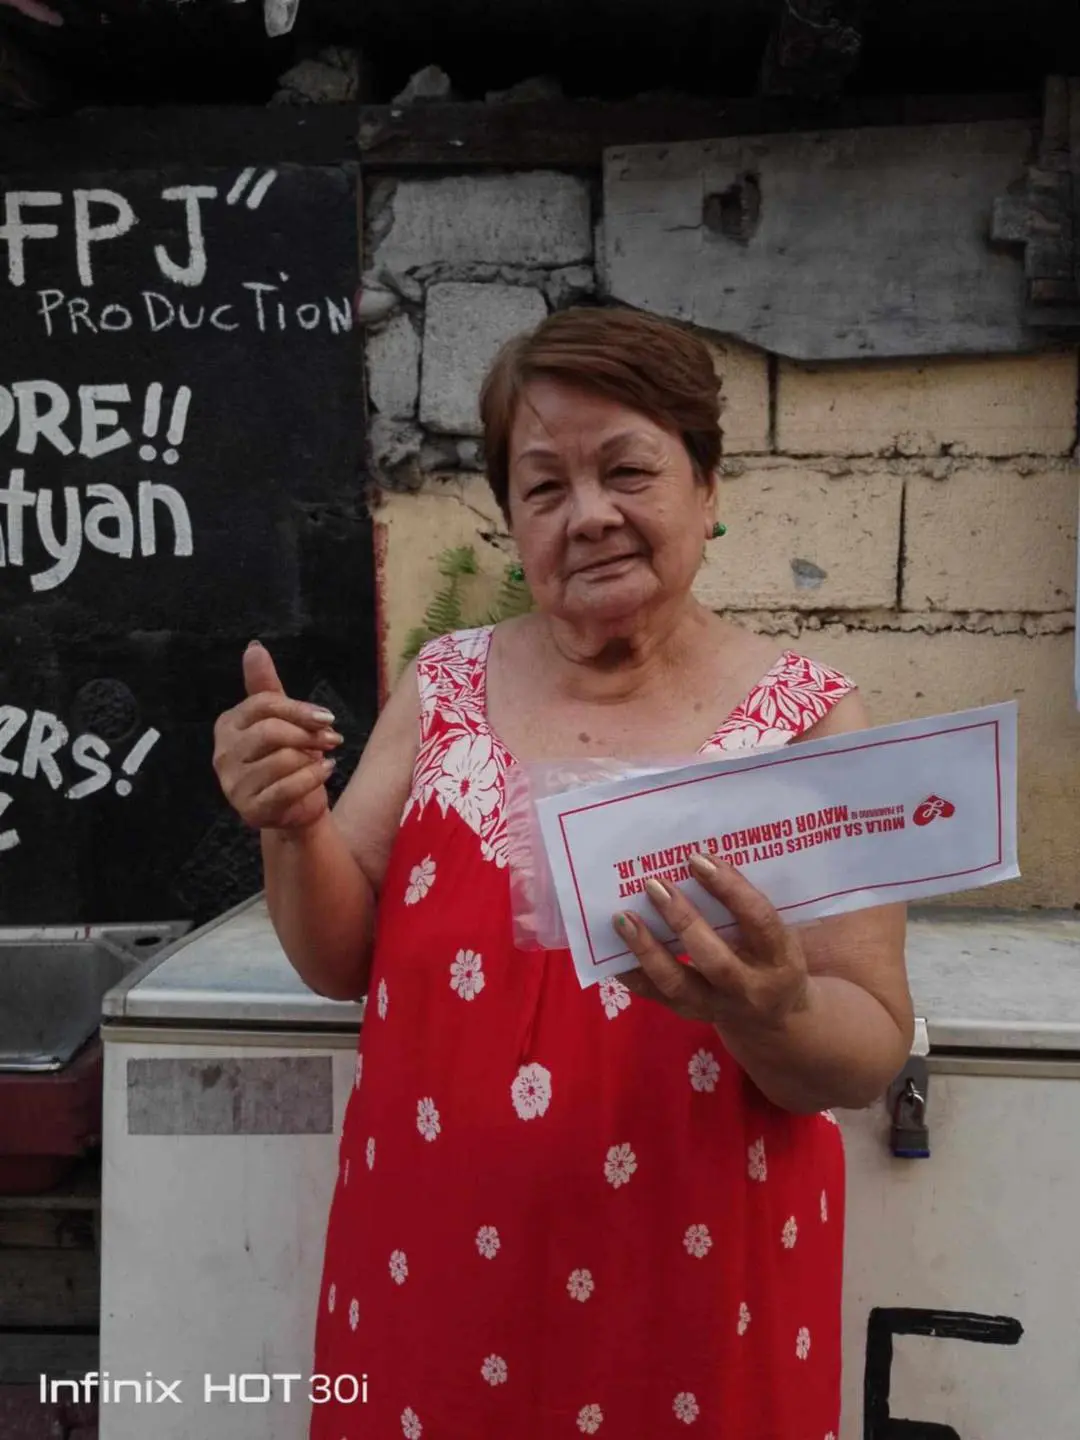 FPJ"
PRODUCTION
ORE!!
tyan
RS!
MULA SA ANGELES CITY LOCAL GOVERNMENT
SA PAMUMUNO NI MAYOR CARMELO G. LAZATIN, JR.
E
Infinix HOT 30i